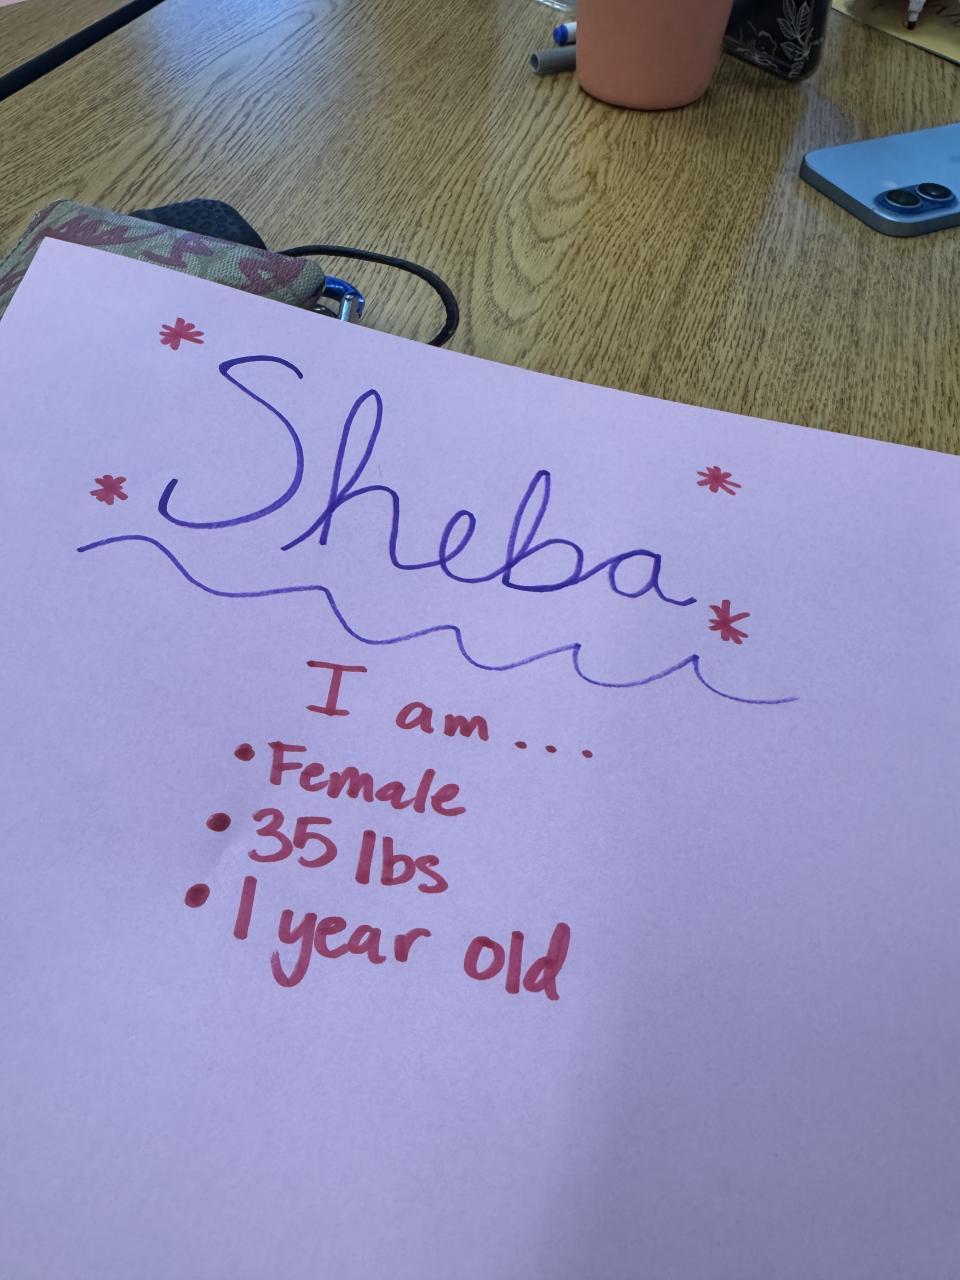 Sheba
I am...
• Female
• 35 lbs
• 1 year old